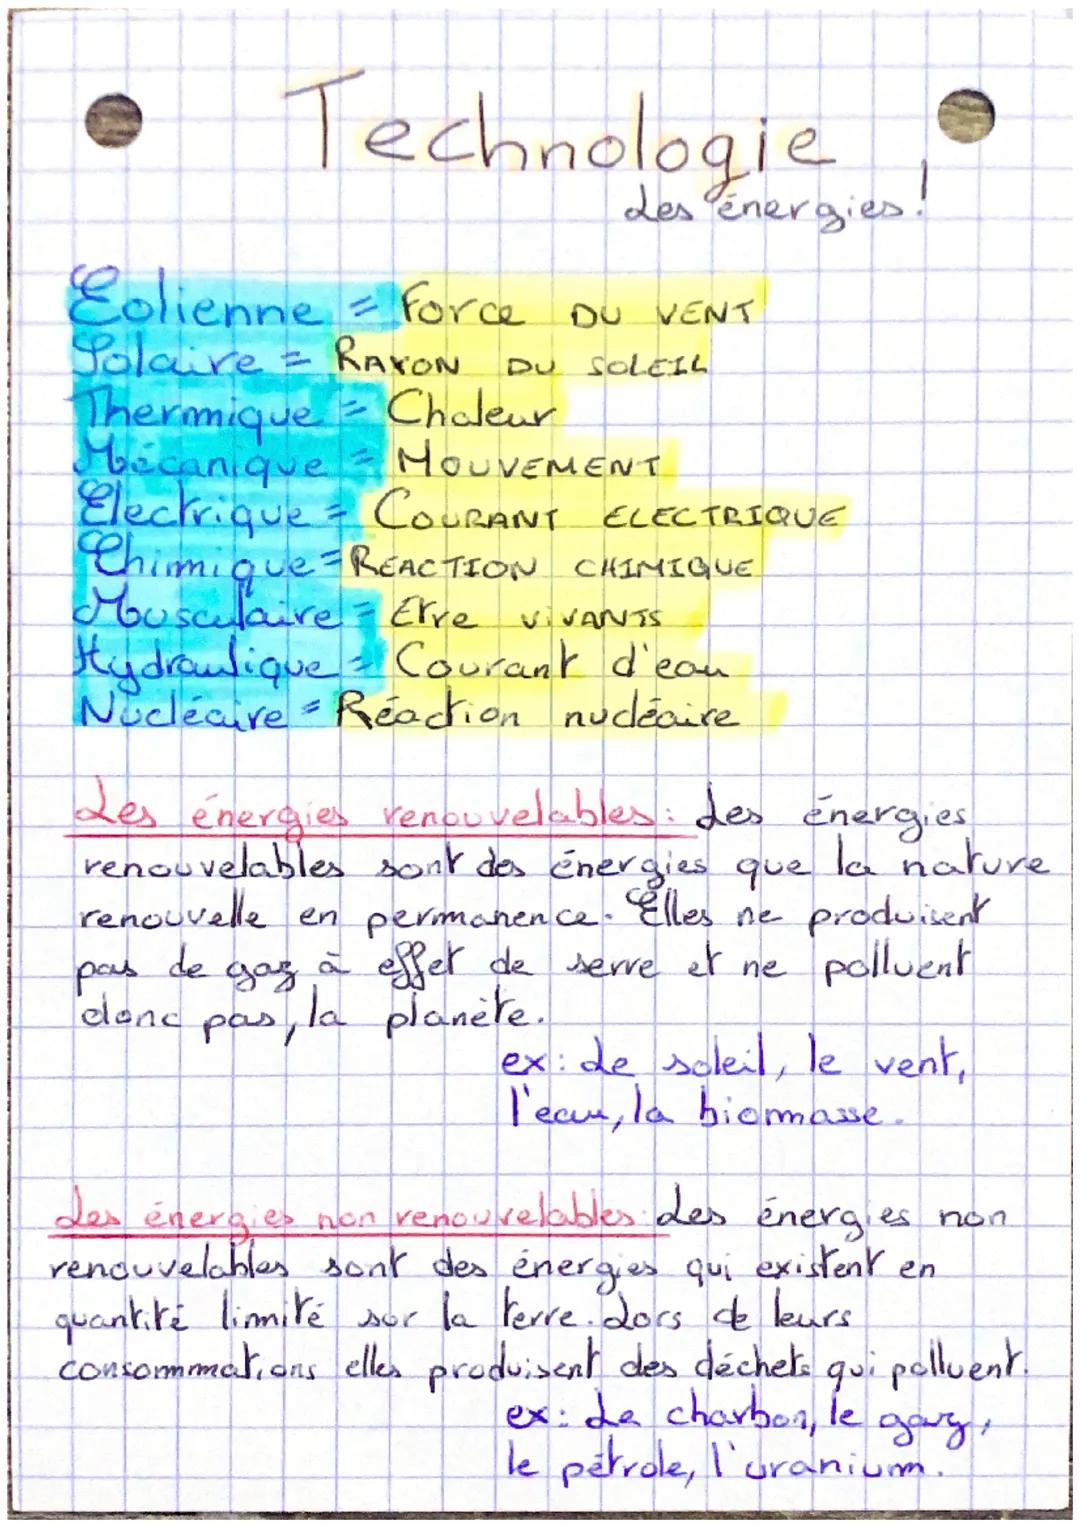 Technologie
Les énergies !
Éolienne = Force DU VENT
Solaire = RAYON DU SOLEIL
Thermique = Chaleur
Mécanique = MOUVEMENT
Electrique = COURANT ELECTRIQUE
Chimique = REACTION CHIMIQUE
Musculaire = Etre VIVANTS
Hydraulique = Courant d'eau
Nucléaire = Réaction nucléaire
Les énergies renouvelables : Les énergies
renouvelables sont des énergies que la nature
renouvelle en permanence. Elles ne produisent
pas de gaz à effet de serre et ne polluent
donc pas, la planète.
ex : Le soleil, le vent,
l'eau, la biomasse.
Les énergies non renouvelables : Les énergies non
renouvelables sont des énergies qui existent en
quantité limité sur la terre. Lors de leurs
consommations elles produisent des déchets qui polluent.
ex : Le charbon, le gaz,
le pétrole, l'uranium.